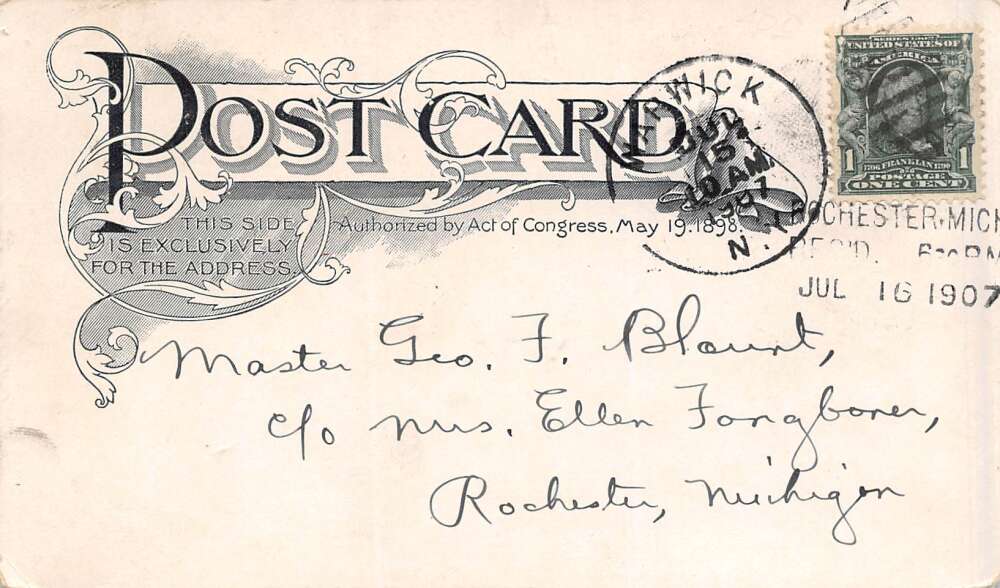 POST CARD
THIS SIDE
IS EXCLUSIVELY
FOR THE ADDRESS.
Authorized by Act of Congress, May 19, 1898.
WARWICK
JUL
15
10 AM
'07
N.Y.
SERIES 1902
UNITED STATES OF
AMERICA
1
1706 FRANKLIN 1790
POSTAGE
1
ONE CENT
ROCHESTER, MICH
REC'D.
JUL 16 1907
Master Geo. F. Blount,
c/o Mrs. Ellen Fongboner,
Rochester, Michigan